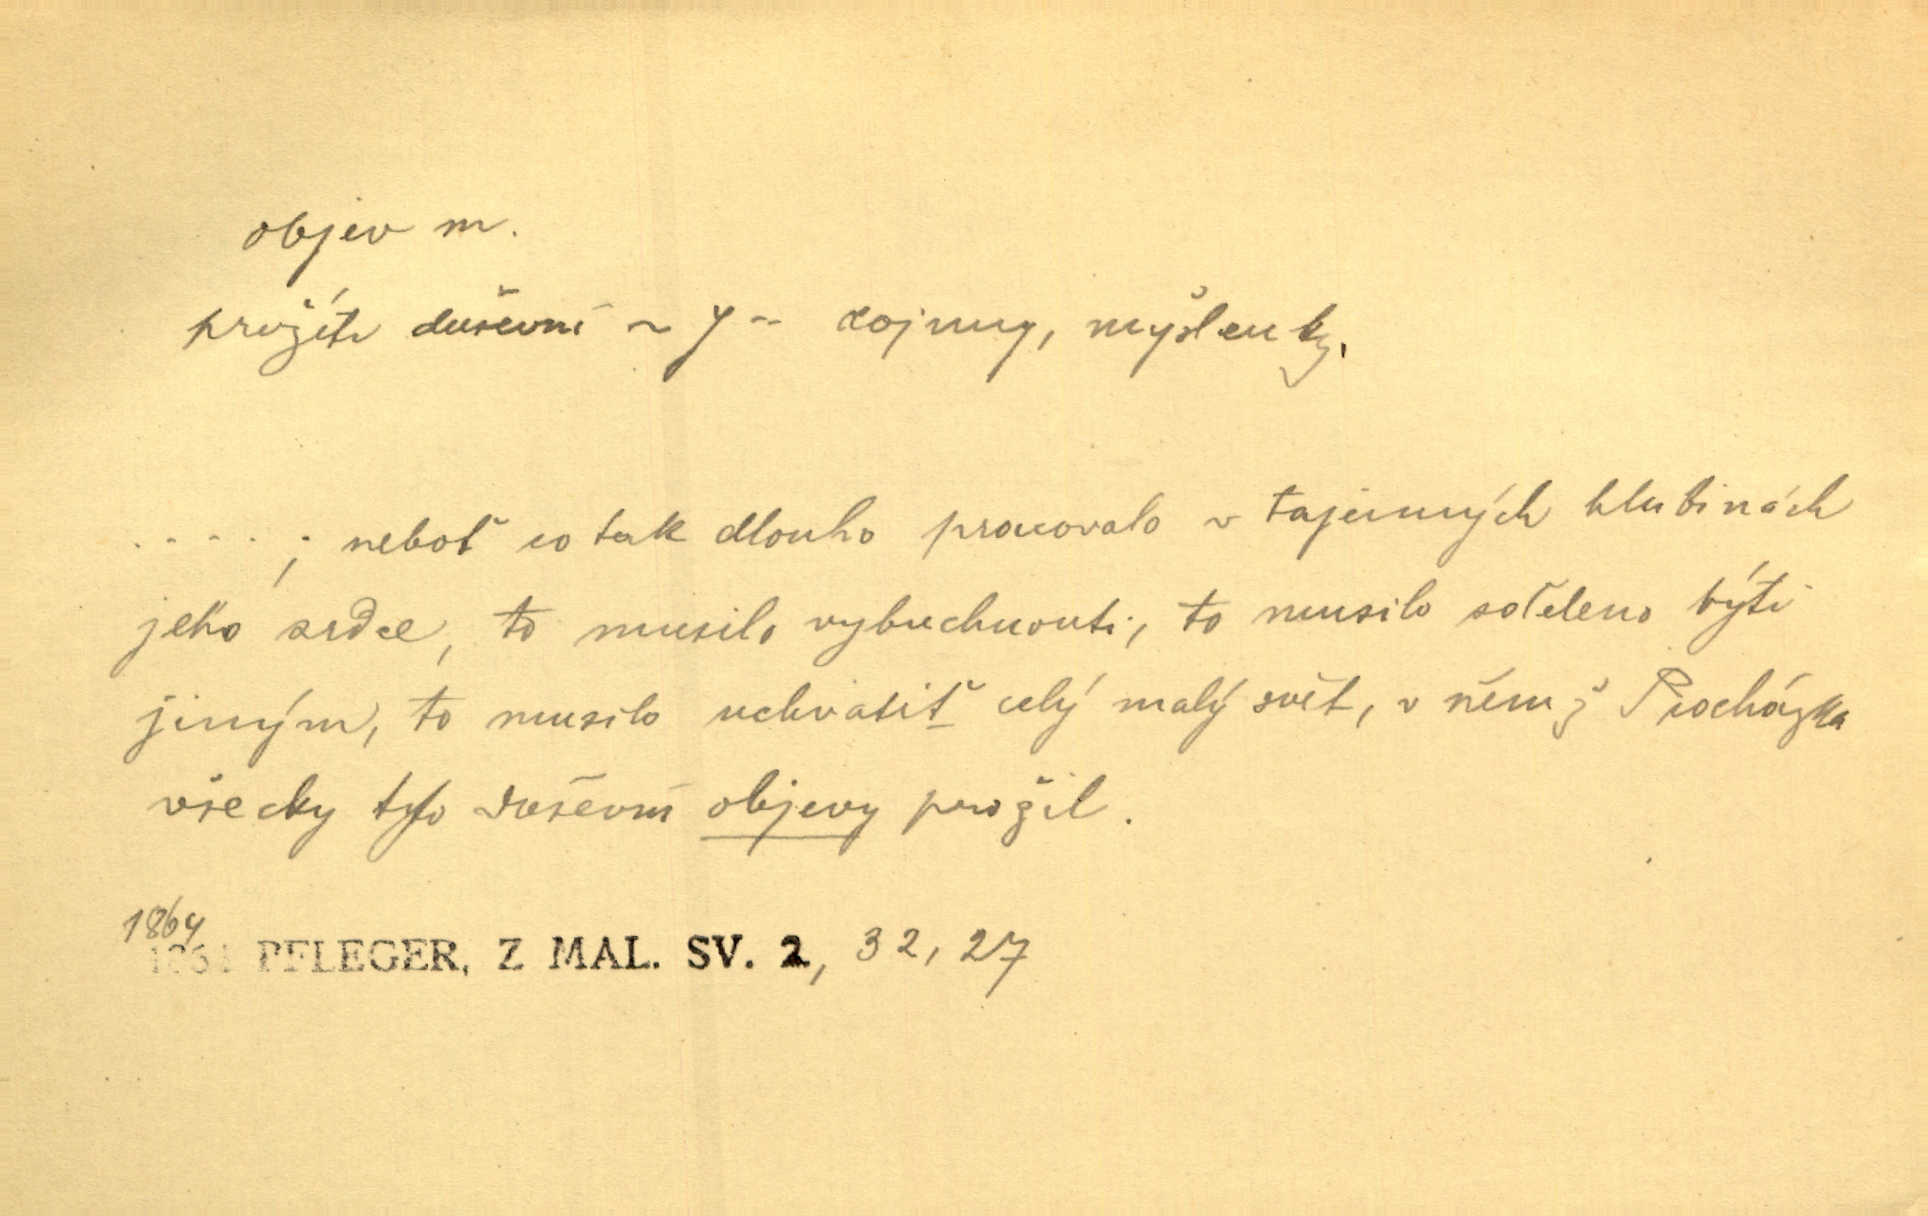 objev m.
prožíti duševní ~ y - dojmy, myšlenky.
....; neboť co tak dlouho pracovalo v tajemných hlubinách
jeho srdce, to musilo vybuchnouti, to musilo sděleno býti
jiným, to musilo uchvátiť celý malý svět, v němž Procházka
všecky tyto duševní objevy prožil.
1864
1864 PFLEGER, Z MAL. SV. 2, 32, 27